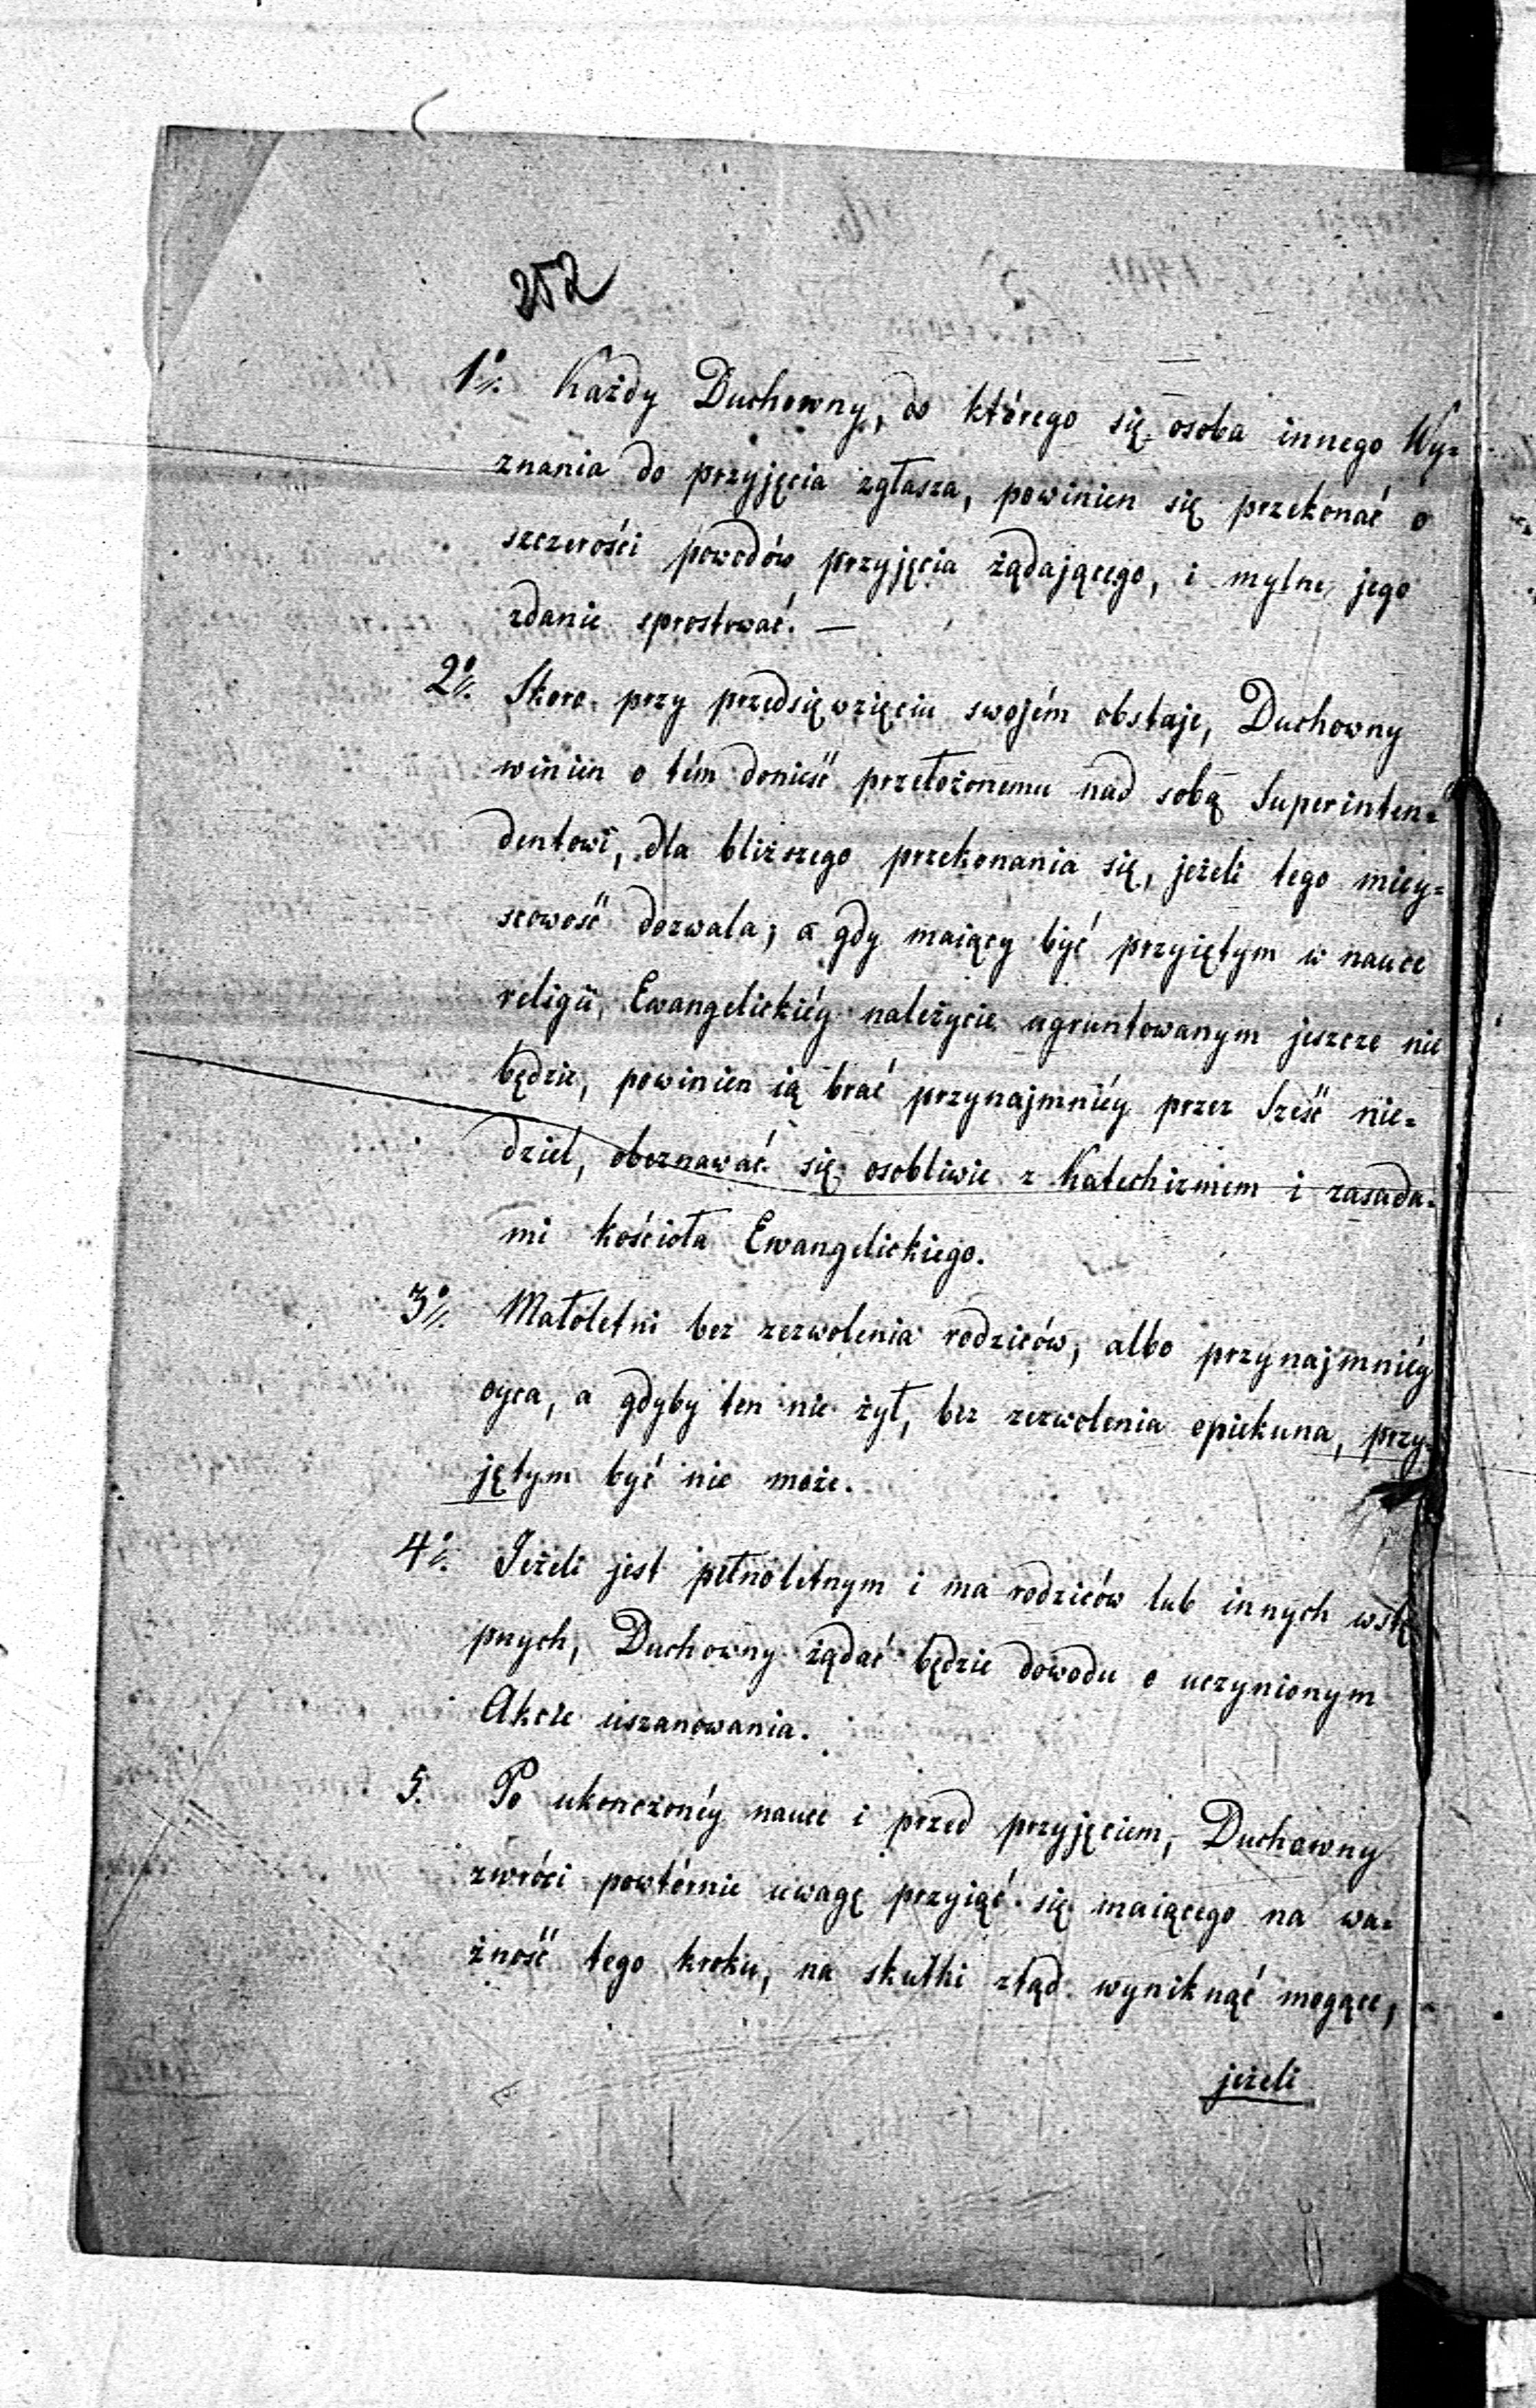 252
1º/. Każdy Duchowny, do którego się osoba innego Wy=
znania do przyjęcia zgłasza, powinien się przekonać o
szczerości powodów przyjęcia żądającego, i mylne jego
zdanie sprostować. —
2º/. Skoro przy przedsięwzięciu swojém obstaje, Duchowny
winien o tém donieść przełożonemu nad sobą Superinten=
dentowi, dla bliższego przekonania się, jeżeli tego miey=
scowość dozwala; a gdy maiący być przyiętym w nauce
religii Ewangelickiéy należycie ugruntowanym jeszcze nie
będzie, powinien ią brać przynajmniéy przez Sześć nie=
dziel, obeznawać się osobliwie z Katechizmem i zasada=
mi kościoła Ewangelickiego.
3º/. Małoletni bez zezwolenia rodziców, albo przynajmniéy
oyca, a gdyby ten nie żył, bez zezwolenia opiekuna, przy=
jętym być nie może.
4º/. Jeżeli jest pełnoletnym i ma rodziców lub innych wstę
pnych, Duchowny żądać będzie dowodu o uczynionym
Akcie uszanowania.
5. Po ukończonéy nauce i przed przyjęciem, Duchowny
zwróci powtórnie uwagę przyiąć się maiącego na wa=
żność tego kroku, na skutki ztąd wyniknąć mogące,
jeżeli